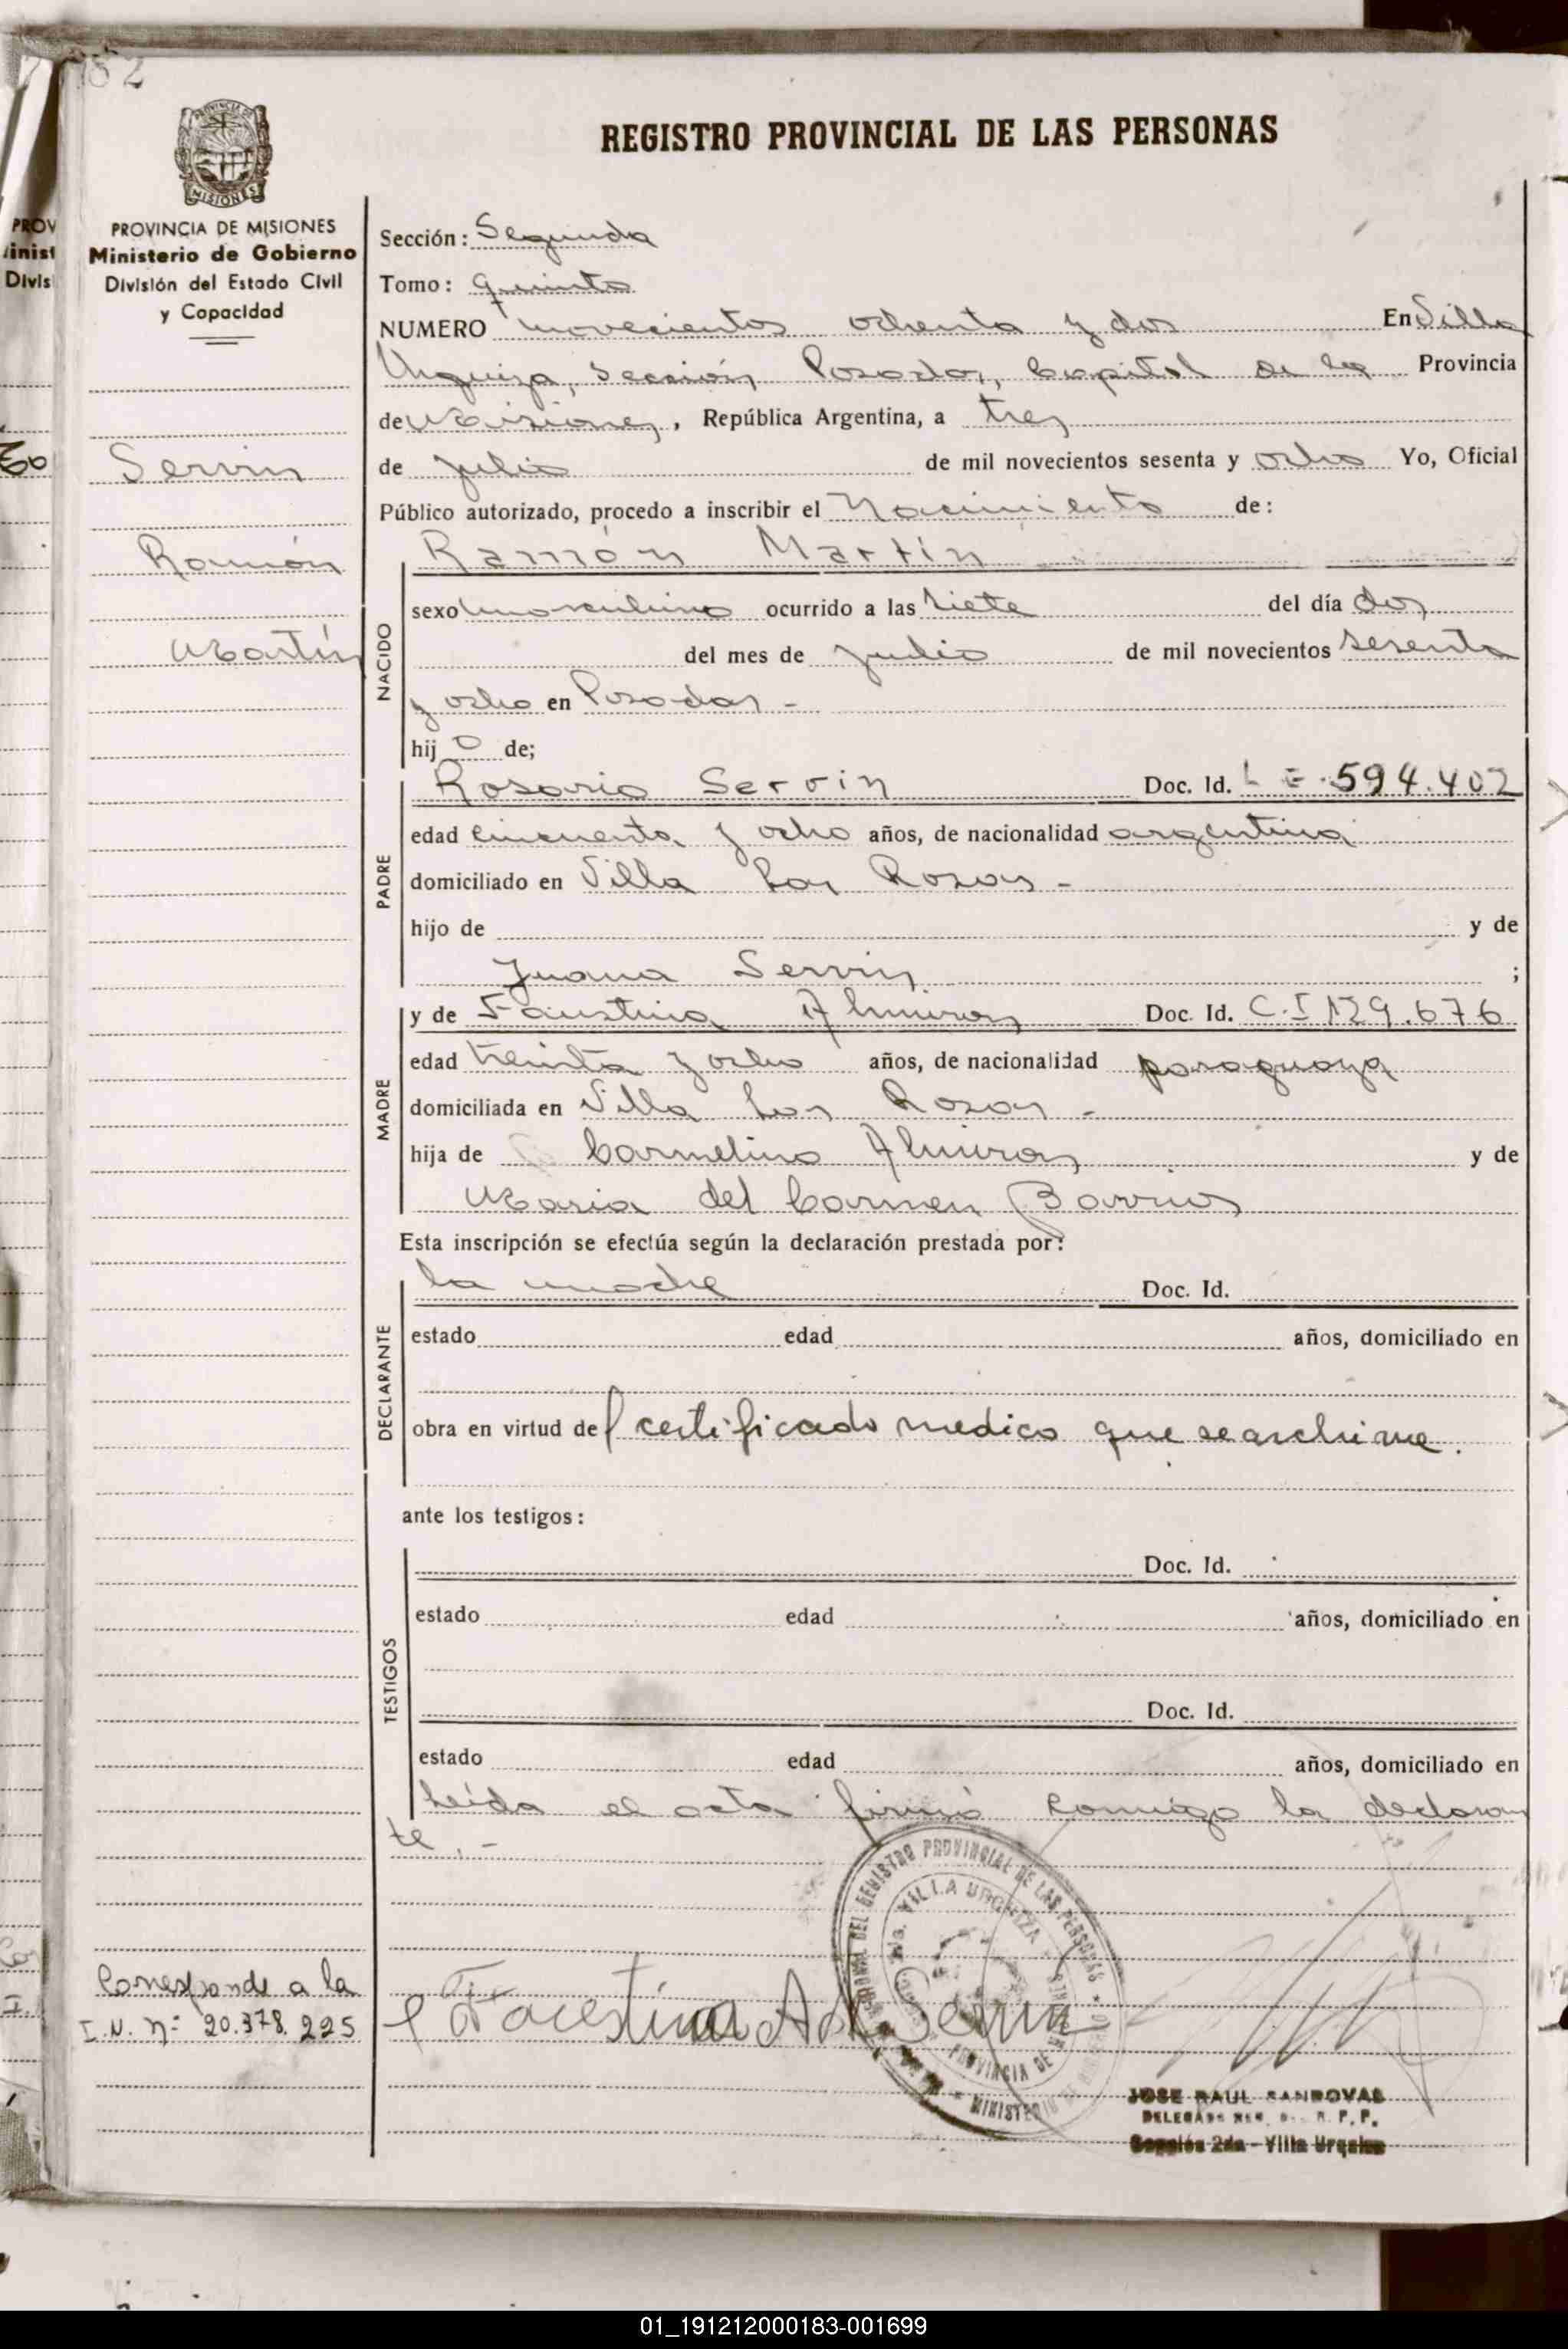 82
REGISTRO PROVINCIAL DE LAS PERSONAS
MISIONES
PROVINCIA DE MISIONES
Ministerio de Gobierno
División del Estado Civil
y Capacidad
Servin
Ramón
Martín
Corresponde a la
I.N. Nº 20.378.225
Sección: Segunda
Tomo: quinto
NUMERO novecientos ochenta y dos En Villa
Urquiza, Sección Posadas, Capital de la Provincia
de Misiones, República Argentina, a tres
de Julio de mil novecientos sesenta y ocho Yo, Oficial
Público autorizado, procedo a inscribir el Nacimiento de:
Ramón Martín
NACIDO
sexo masculino ocurrido a las siete del día dos
del mes de Julio de mil novecientos sesenta
y ocho en Posadas -
hij o de;
PADRE
Rosario Servin Doc. Id. L E 594.402
edad cincuenta y ocho años, de nacionalidad argentina
domiciliado en Villa Las Rosas -
hijo de y de
Juana Servin ;
MADRE
y de Faustina Almiron Doc. Id. C.I 129.676
edad treinta y ocho años, de nacionalidad paraguaya
domiciliada en Villa Las Rosas -
hija de Carmelino Almiron y de
Maria del Carmen Barrios
Esta inscripción se efectúa según la declaración prestada por:
DECLARANTE
la madre Doc. Id.
estado edad años, domiciliado en
obra en virtud del certificado medico que se archiva.
ante los testigos:
TESTIGOS
Doc. Id.
estado edad años, domiciliado en
Doc. Id.
estado edad años, domiciliado en
Leída el acta firmó conmigo la declaran
te. -
REGISTRO PROVINCIAL DE LAS PERSONAS
VILLA URQUIZA
PROVINCIA DE
JOSE RAUL SANDOVAL
Sección 2da - Villa Urquiza
01_191212000183-001699